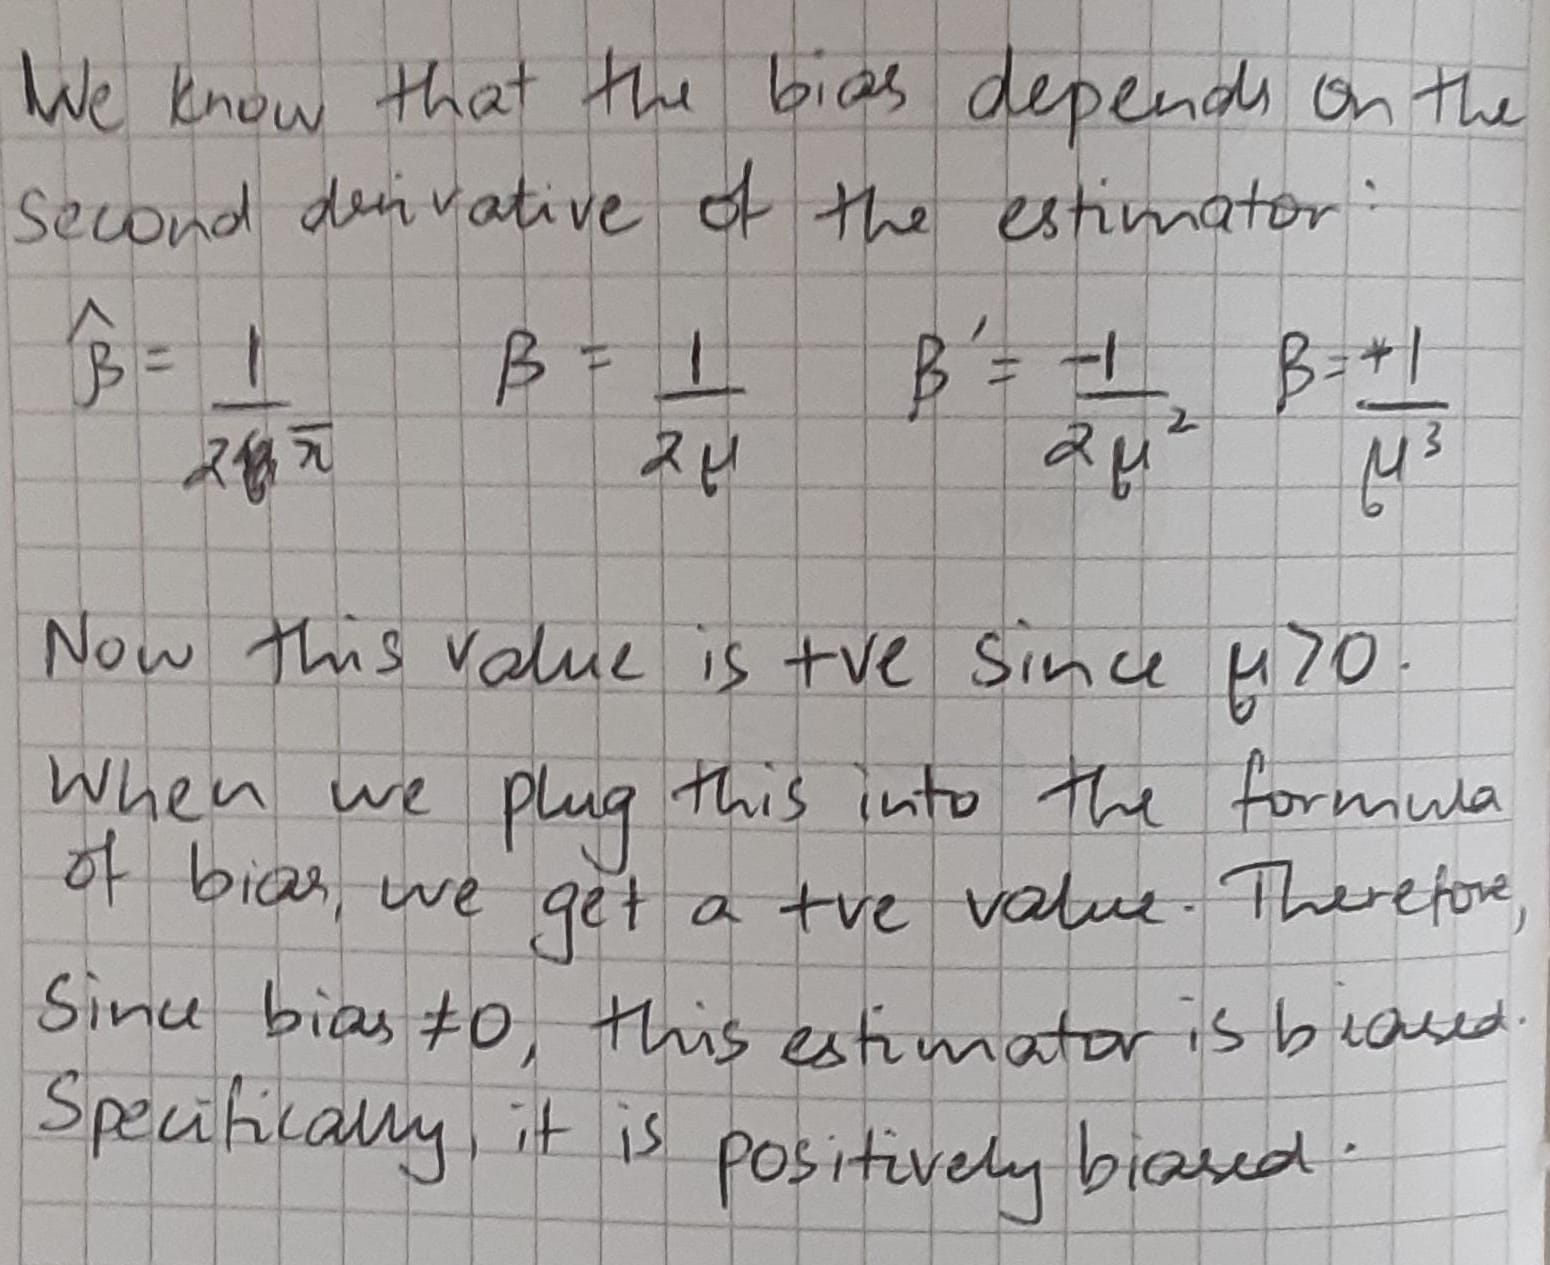 We know that the bias depends on the
second derivative of the estimator:
β̂ = 1/(2x̄)    β = 1/(2μ)    β' = -1/(2μ²)    β = +1/μ³
Now this value is +ve since μ>0.
When we plug this into the formula
of bias, we get a +ve value. Therefore,
Since bias ≠0, this estimator is biased.
Specifically, it is positively biased.